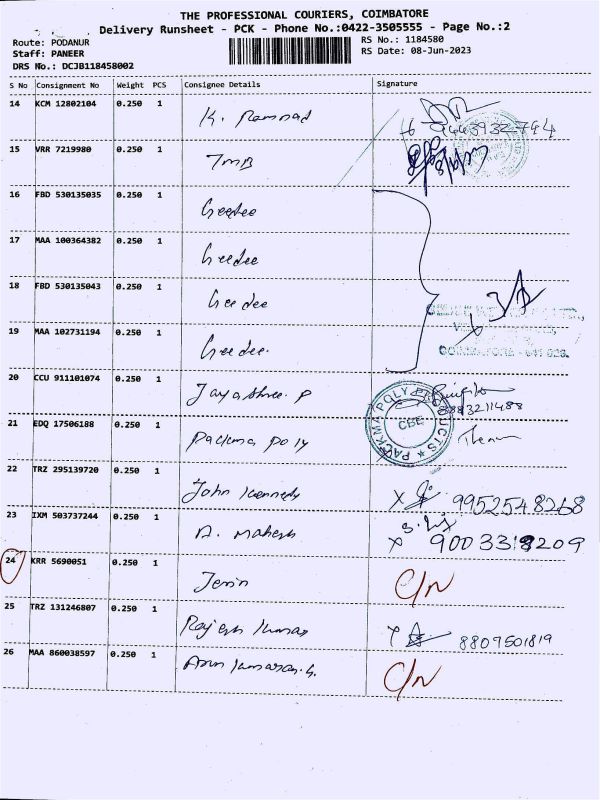 THE PROFESSIONAL COURIERS, COIMBATORE
Delivery Runsheet - PCK - Phone No.:0422-3505555 - Page No.:2
Route: PODANUR RS No.: 1184580
Staff: PANEER RS Date: 08-Jun-2023
DRS No.: DCJB118458002
S No Consignment No Weight PCS Consignee Details Signature
14 KCM 12802104 0.250 1 K. Ramnad
15 VRR 7219980 0.250 1 TMB
16 FBD 530135035 0.250 1 Geedee
17 MAA 100364382 0.250 1 Geedee
18 FBD 530135043 0.250 1 Gee dee
19 MAA 102731194 0.250 1 Gee dee.
COIMBATORE - 641 023.
20 CCU 911101074 0.250 1 Jayashree. P 8883211488
PACKMA POLY PRODUCTS
CBE
21 EDQ 17506188 0.250 1 Packma poly
22 TRZ 295139720 0.250 1 John Kennedy X 9952548268
23 IXM 503737244 0.250 1 A. Mahesh X 9003318209
24 KRR 5690051 0.250 1 Jenin C/N
25 TRZ 131246807 0.250 1 Rajesh Kumar 8809501819
26 MAA 860038597 0.250 1 Arun Kumaran. G. C/N